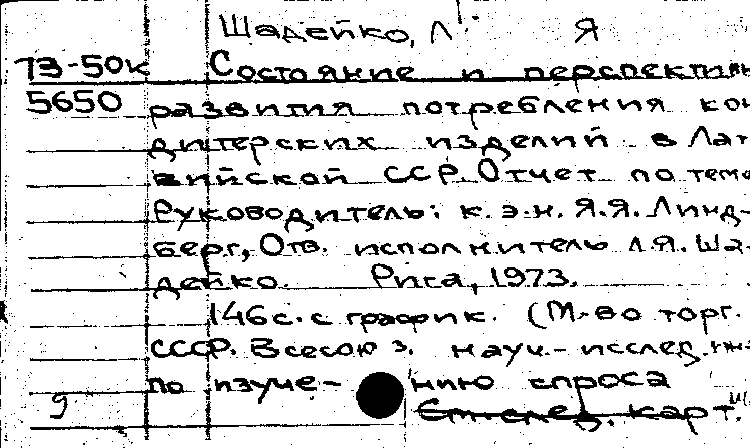 Шадейко, Л. Я
73-50к Состояние и перспективы
5650 развития потребления кон
дитерских изделий в Лат
вийской ССР. Отчет по теме
Руководитель: к.э.н. Я.Я. Линд-
берг, Отв. исполнитель Л.Я. Ша-
дейко. Рига, 1973.
146с. с график. (М-во торг.
СССР. Всесоюз. науч.-исслед. ин-
по изуче- нию спроса
9 См. след. карт.